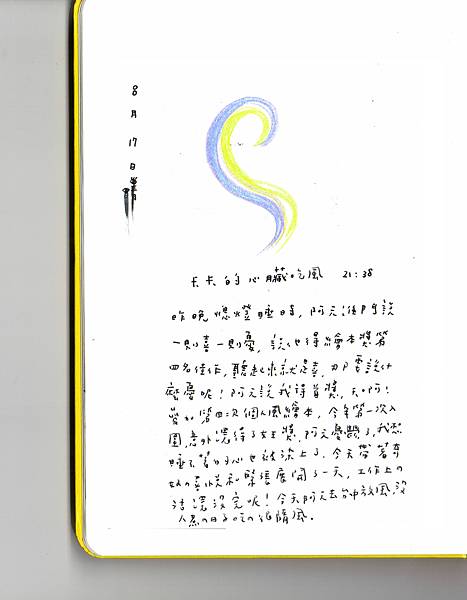 8月17日
卡卡的心臟吃風 21:38
昨晚熄燈睡時,阿元說
一則喜一則憂,說他得繪本獎第
四名佳作,聽起來就是喜,那要說什
麼憂呢!阿元說我得首獎,天啊!
第四次個人風繪本,今年第一次入
圍,意外還得了女王獎,阿元說了,我想
睡了心也被染上了.今天帶著奇
妙的喜悅和緊張展開了一天,工作上的
活還沒完呢!今天阿元去台中放風,沒
人煮的日子吃的很隨風.